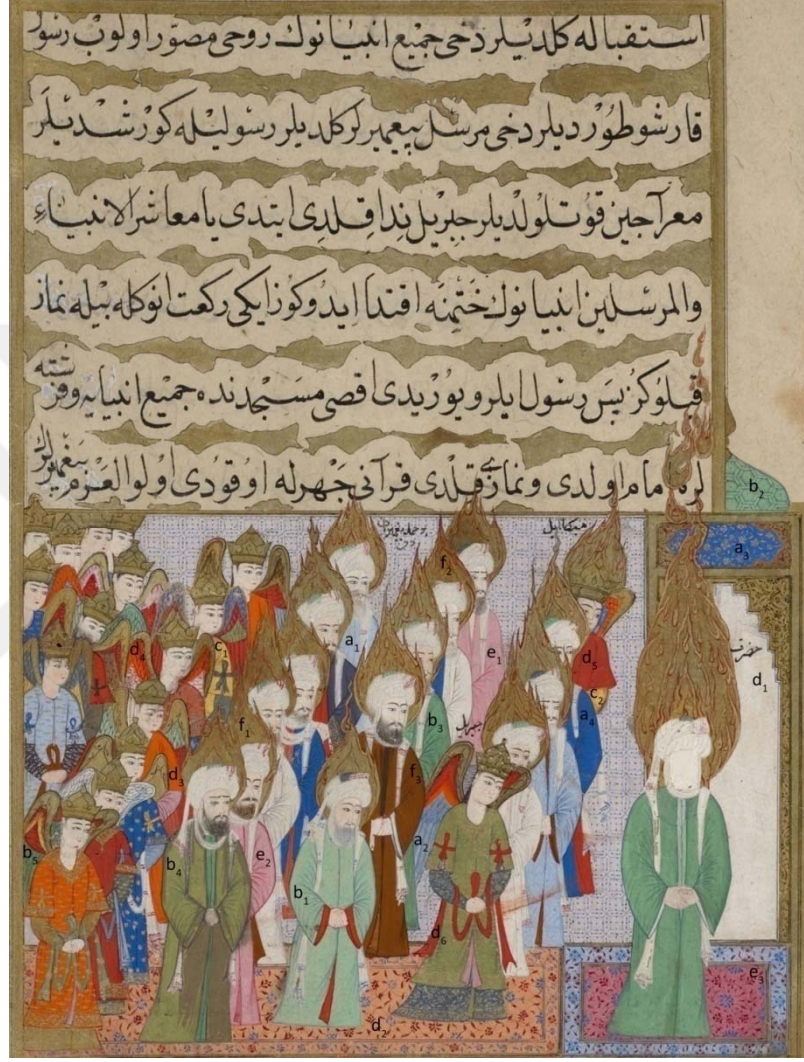 استقباله كلديلر دخى جميع انبيانوك روحى مصوّر اولوب رسول
قارشو طورديلر دخى مرسل پيغمبرلر كلديلر رسوليله كورشديلر
معراجين قوتلولديلر جبريل ندا قلدى ايتدى يا معاشر الانبياء
والمرسلين انبيانوك ختمنه اقتدا ايدوكوز ايكى ركعت انوكله بيله نماز
قيلوكز پس رسول ايلرو يوريدى اقصى مسجدنده جميع انبيايه و فرشته
لره امام اولدى و نمازى قلدى قرآنى جهرله اوقودى اولوالعزم پيغمبرلر
b₂
ميكائيل
a₃
f₂
حضرت
d₁
a₁
e₁
d₄
c₁
d₅
c₂
a₄
f₁
b₃
جبريل
d₃
f₃
b₅
b₄
e₂
a₂
b₁
d₆
e₃
d₂